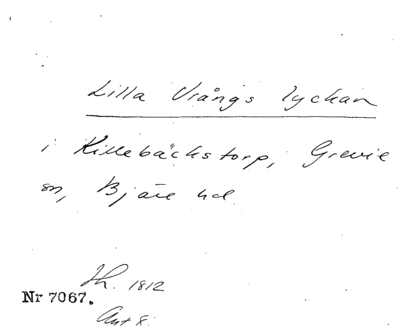 Lilla Vrångs lyckan
i Killebäckstorp, Grevie
sn, Bjäre hd
Th. 1812
Nr 7067.
Ant 8.